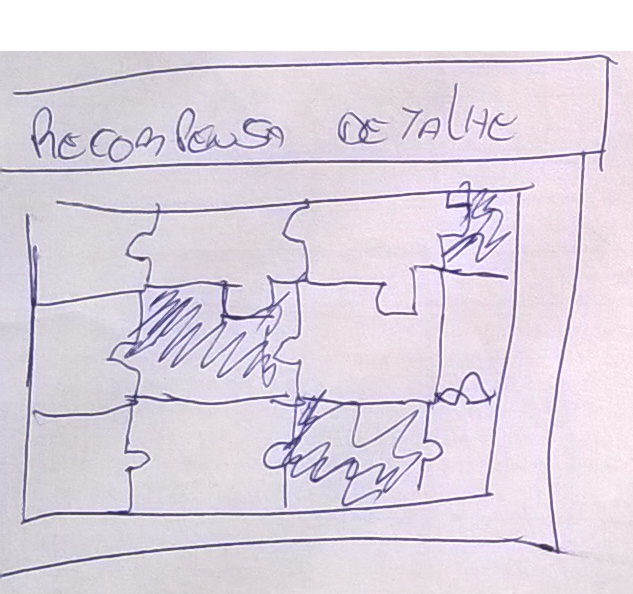 RECOMPENSA DETALHE